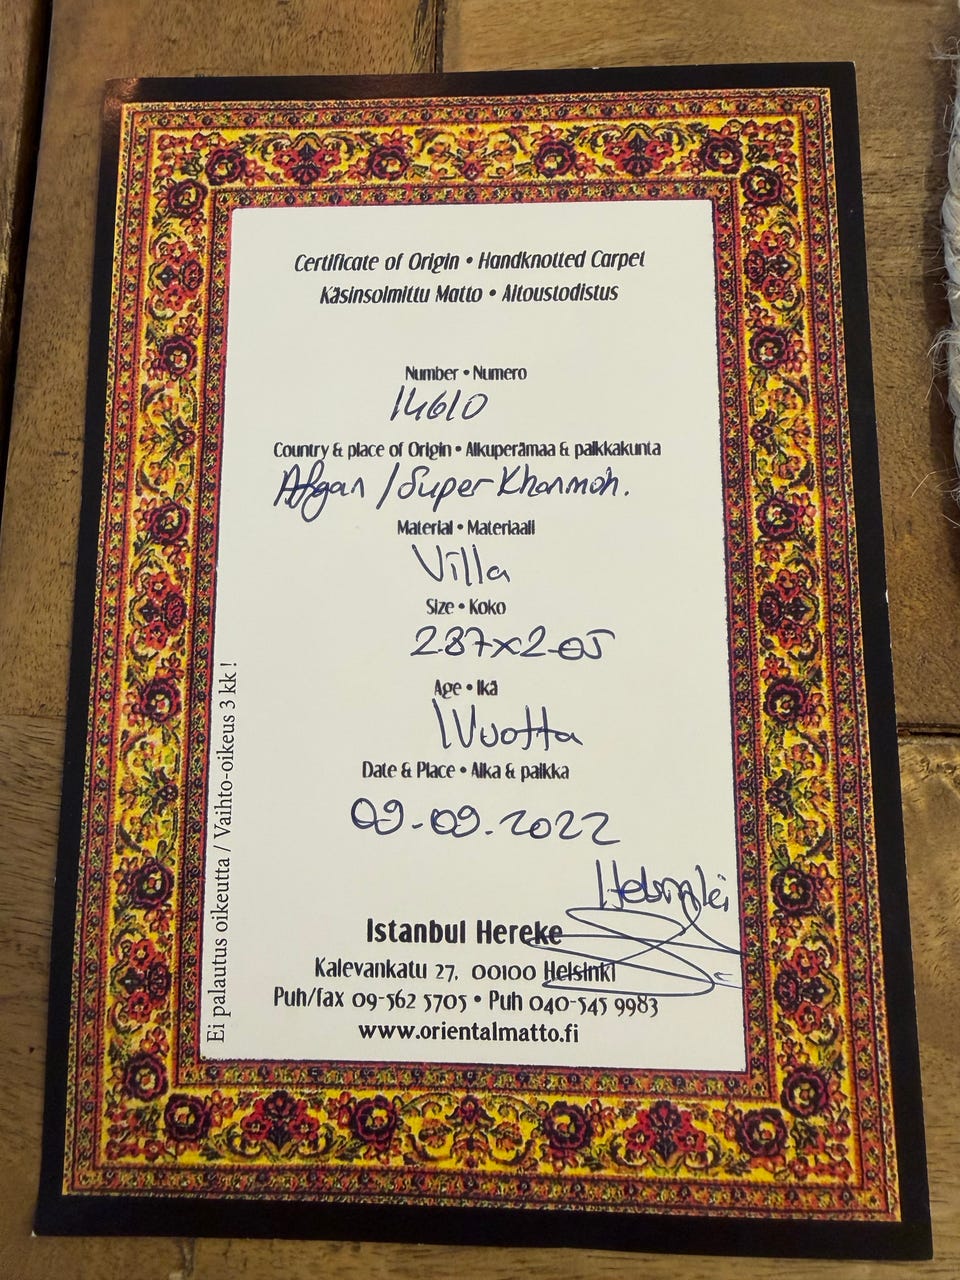 Certificate of Origin • Handknotted Carpet
Käsinsolmittu Matto • Aitoustodistus
Number • Numero
14610
Country & place of Origin • Alkuperämaa & paikkakunta
Afgan / Super Khanmoh.
Material • Materiaali
Villa
Size • Koko
287x2-05
Age • Ikä
1 Vuotta
Date & Place • Aika & paikka
09-09-2022
Helsinki
Istanbul Hereke
Kalevankatu 27, 00100 Helsinki
Puh/fax 09-562 5705 • Puh 040-545 9983
www.orientalmatto.fi
Ei palautus oikeutta / Vaihto-oikeus 3 kk !